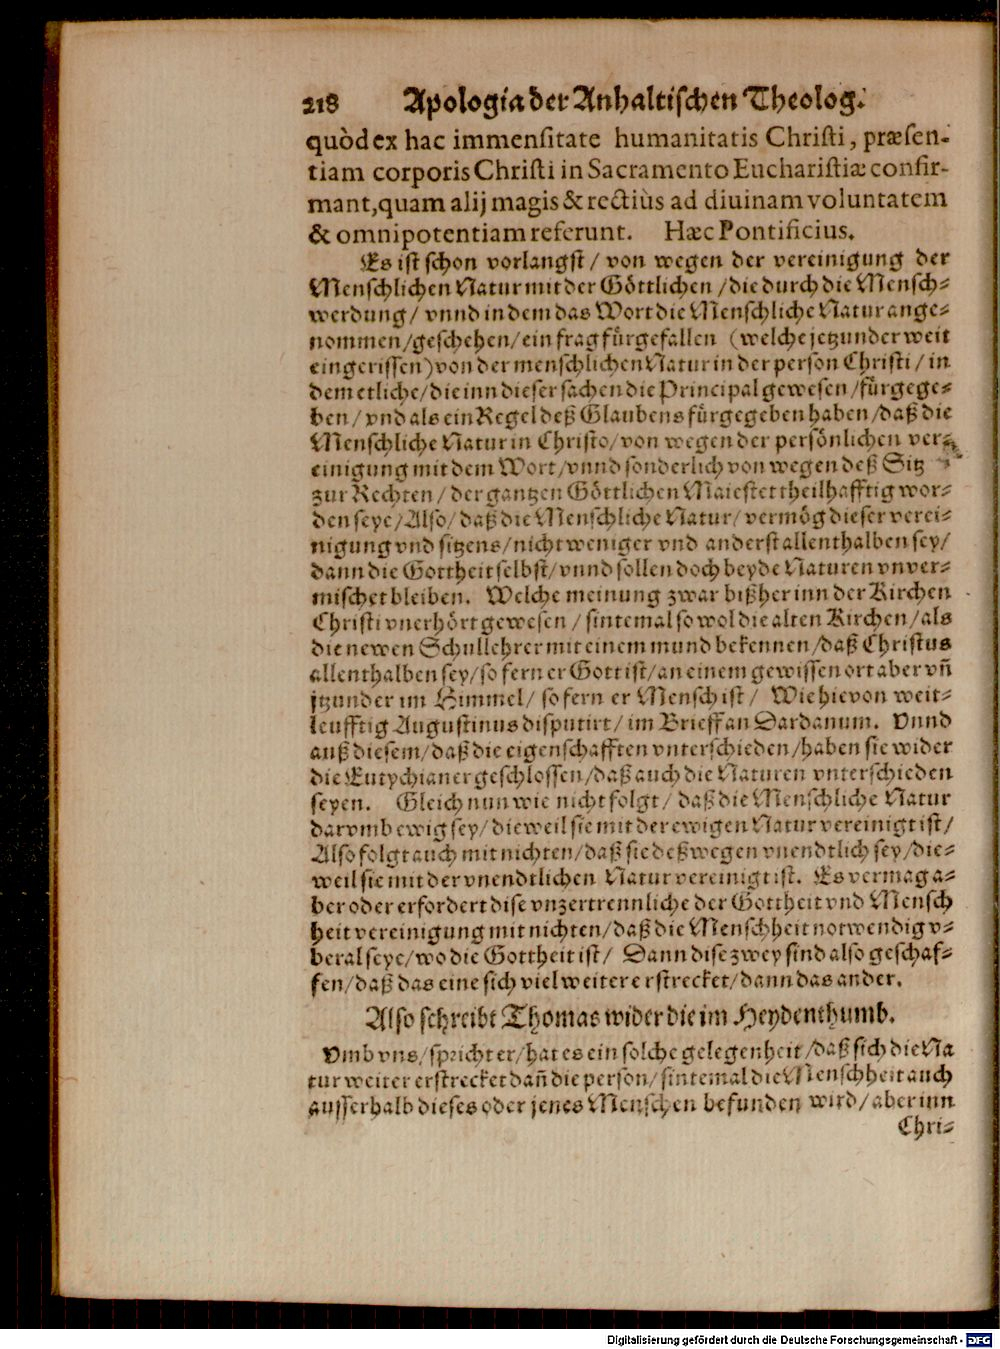 218 Apologia der Anhaltischen Theolog.
quòd ex hac immensitate humanitatis Christi, præsen-
tiam corporis Christi in Sacramento Eucharistiæ confir-
mant, quam alij magis & rectiùs ad diuinam voluntatem
& omnipotentiam referunt. Hæc Pontificius.
Es ist schon vorlangst / von wegen der vereinigung der
Menschlichen Natur mit der Göttlichen / die durch die Mensch-
werdung / vnnd in dem das Wort die Menschliche Natur ange-
nommen / geschehen / ein frag fürgefallen (welche jetzunder weit
eingerissen) von der menschlichen Natur in der person Christi / in
dem etliche / die inn dieser sachen die Principal gewesen / fürgege-
ben / vnd als ein Regel deß Glaubens fürgegeben haben / daß die
Menschliche Natur in Christo / von wegen der persönlichen ver-
einigung mit dem Wort / vnnd sonderlich von wegen deß Sitz
zur Rechten / der gantzen Göttlichen Maiestet theilhafftig wor-
den seye / Also / daß die Menschliche Natur / vermög dieser verei-
nigung vnd sitzens / nicht weniger vnd anderst allenthalben sey /
dann die Gottheit selbst / vnnd sollen doch beyde Naturen vnver-
mischet bleiben. Welche meinung zwar bißher inn der Kirchen
Christi vnerhört gewesen / sintemal so wol die alten Kirchen / als
die newen Schullehrer mit einem mund bekennen / daß Christus
allenthalben sey / so fern er Gott ist / an einem gewissen ort aber vñ
jtzunder im Himmel / so fern er Mensch ist / Wie hievon weit-
leufftig Augustinus disputirt / im Brieff an Dardanum. Vnnd
auß diesem / daß die eigenschafften vnterschieden / haben sie wider
die Eutychianer geschlossen / daß auch die Naturen vnterschieden
seyen. Gleich nun wie nicht folgt / daß die Menschliche Natur
darvmb ewig sey / dieweil sie mit der ewigen Natur vereinigt ist /
Also folgt auch mit nichten / daß sie deßwegen vnendtlich sey / die-
weil sie mit der vnendtlichen Natur vereinigt ist. Es vermag a-
ber oder erfordert dise vnzertrennliche der Gottheit vnd Mensch
heit vereinigung mit nichten / daß die Menschheit notwendig v-
beral seye / wo die Gottheit ist / Dann dise zwey sind also geschaf-
fen / daß das eine sich viel weiter erstrecket / dann das ander.
Also schreibt Thomas wider die im Heydenthumb.
Vmb vns / spricht er / hat es ein solche gelegenheit / daß sich die Na
tur weiter erstrecket dañ die person / sintemal die Menschheit auch
ausserhalb dieses oder jenes Menschen befunden wird / aber inn
Chri-
Digitalisierung gefördert durch die Deutsche Forschungsgemeinschaft - DFG